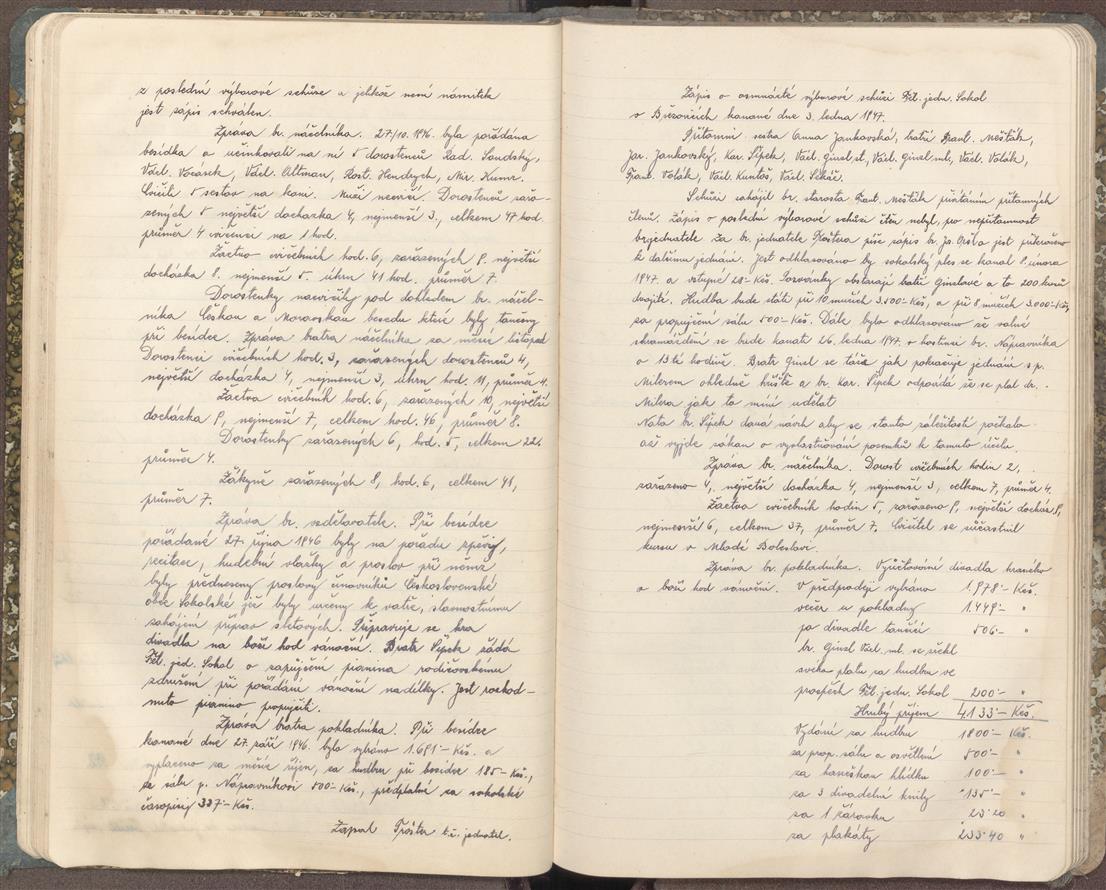 z poslední výborové schůze a jelikož není námitek
jest zápis schválen.
Zpráva br. náčelníka. 27/10. 1946. byla pořádána
besídka a účinkovali na ní 5 dorostenců Rad. Soudský,
Václ. Vocásek, Václ. Altman, Rost. Hendrych, Mir. Kumr.
Cvičili 5 sestav na koni. Muži necvičí. Dorostenců zařa-
zených 5 největší docházka 4, nejmenší 3, celkem 47 hod.
průměr 4 cvičenci na 1 hod.
Žactvo cvičebních hod. 6, zařazených 8. největší
docházka 8. nejmenší 5. úhrn 41 hod. průměr 7.
Dorostenky nacvičily pod dohledem br. náčel-
níka Českou a Moravskou besedu které byly tančeny
při besídce. Zpráva bratra náčelníka za měsíc listopad
Dorostenci cvičebních hod. 3, zařazených dorostenců 4,
největší docházka 4, nejmenší 3, úhrn hod. 11, průměr 4.
Žactva cvičebník hod. 6, zařazených 10, největší
docházka 9, nejmenší 7, celkem hod. 46, průměr 8.
Dorostenky zařazených 6, hod. 5, celkem 22.
průměr 4.
Žákyně zařazených 8, hod. 6, celkem 41,
průměr 7.
Zpráva br. vzdělavatele. Při besídce
pořádané 27. října 1946 byly na pořadu zpěvy,
recitace, hudební vložky a proslov při němž
byly předneseny proslovy činovníků Československé
obce Sokolské jež byly určeny k vatře, slavnostnímu
zahájení příprav sletových. Připravuje se hra
divadla na boží hod vánoční. Bratr Šípek žádá
Těl. jed. Sokol o zapůjčení pianina rodičovskému
sdružení při pořádání vánoční nadílky. Jest rozhod-
nuto pianino propůjčiti.
Zpráva bratra pokladníka. Při besídce
konané dne 27. září 1946. bylo vybráno 1.691- Kčs. a
vyplaceno za měsíc říjen, za hudbu při besídce 185- Kčs.,
za sálu p. Nápravníkovi 500- Kčs., předplatné za sokolské
časopisy 337- Kčs.
Zapsal t.č. jednatel.
Zápis o osmnácté výborové schůzi Těl. jedn. Sokol
v Březovicích konané dne 3. ledna 1947.
Přítomni sestra Anna Jankovská, bratři Frant. Mešták,
Jar. Jankovský, Kar. Šípek, Václ. Ginzl st., Václ. Ginzl ml., Václ. Volák,
Frant. Volák, Václ. Kuntoš, Václ. Sekáč.
Schůzi zahájil br. starosta Frant. Mešták přivítáním přítomných
členů. Zápis o poslední výborové schůzi čten nebyl, pro nepřítomnost
br. jednatele. Za br. jednatele píše zápis br. jest přikročeno
k dalšímu jednání. Jest odhlasováno by sokolský ples se konal 8. února
1947. a vstupné 20- Kčs. Pozvánky obstarají bratři Ginzlové a to 200 kusů
dvojité. Hudba bude státi při 10 mužích 3.500- Kčs, a při 8 mužích 3.000- Kčs,
za propůjčení sálu 500- Kčs. Dále bylo odhlasováno že valné
shromáždění se bude konati 26. ledna 1947. v hostinci br. Nápravníka
o 13té hodině. Bratr Ginzl se táže jak pokračuje jednání s p.
Milerem ohledně hřiště a br. Kar. Šípek odpovídá že se ptal dr.
Milera jak to míní udělat
Nato br. Šípek dává návrh aby se stouto záležitostí počkalo
až vyjde zákon o vyvlastňování pozemků k tomuto účelu.
Zpráva br. náčelníka. Dorost cvičebních hodin 2,
zařazeno 4, největší docházka 4, nejmenší 3, celkem 7, průměr 4.
Žactva cvičebník hodin 5, zařazeno 9, největší docház 9,
nejmenší 6, celkem 37, průměr 7. Cvičitel se súčastnil
kursu v Mladé Boleslavi.
Zpráva br. pokladníka. Vyúčtování divadla hraného
o boží hod vánoční. V předprodeji vybráno 1.978- Kčs.
večer u pokladny 1.449- "
po divadle tančící 506- "
br. Ginzl Václ. ml. se zřekl
svého platu za hudbu ve
prospěch Těl. jedn. Sokol 200- "
Hrubý příjem 4.133- Kčs.
Vydání za hudbu 1800- Kčs.
za prop. sálu a osvětlení 500- "
za hasičskou hlídku 100- "
za 3 divadelní knihy 135- "
za 1 žárovku 23.20 "
za plakáty 233.40 "